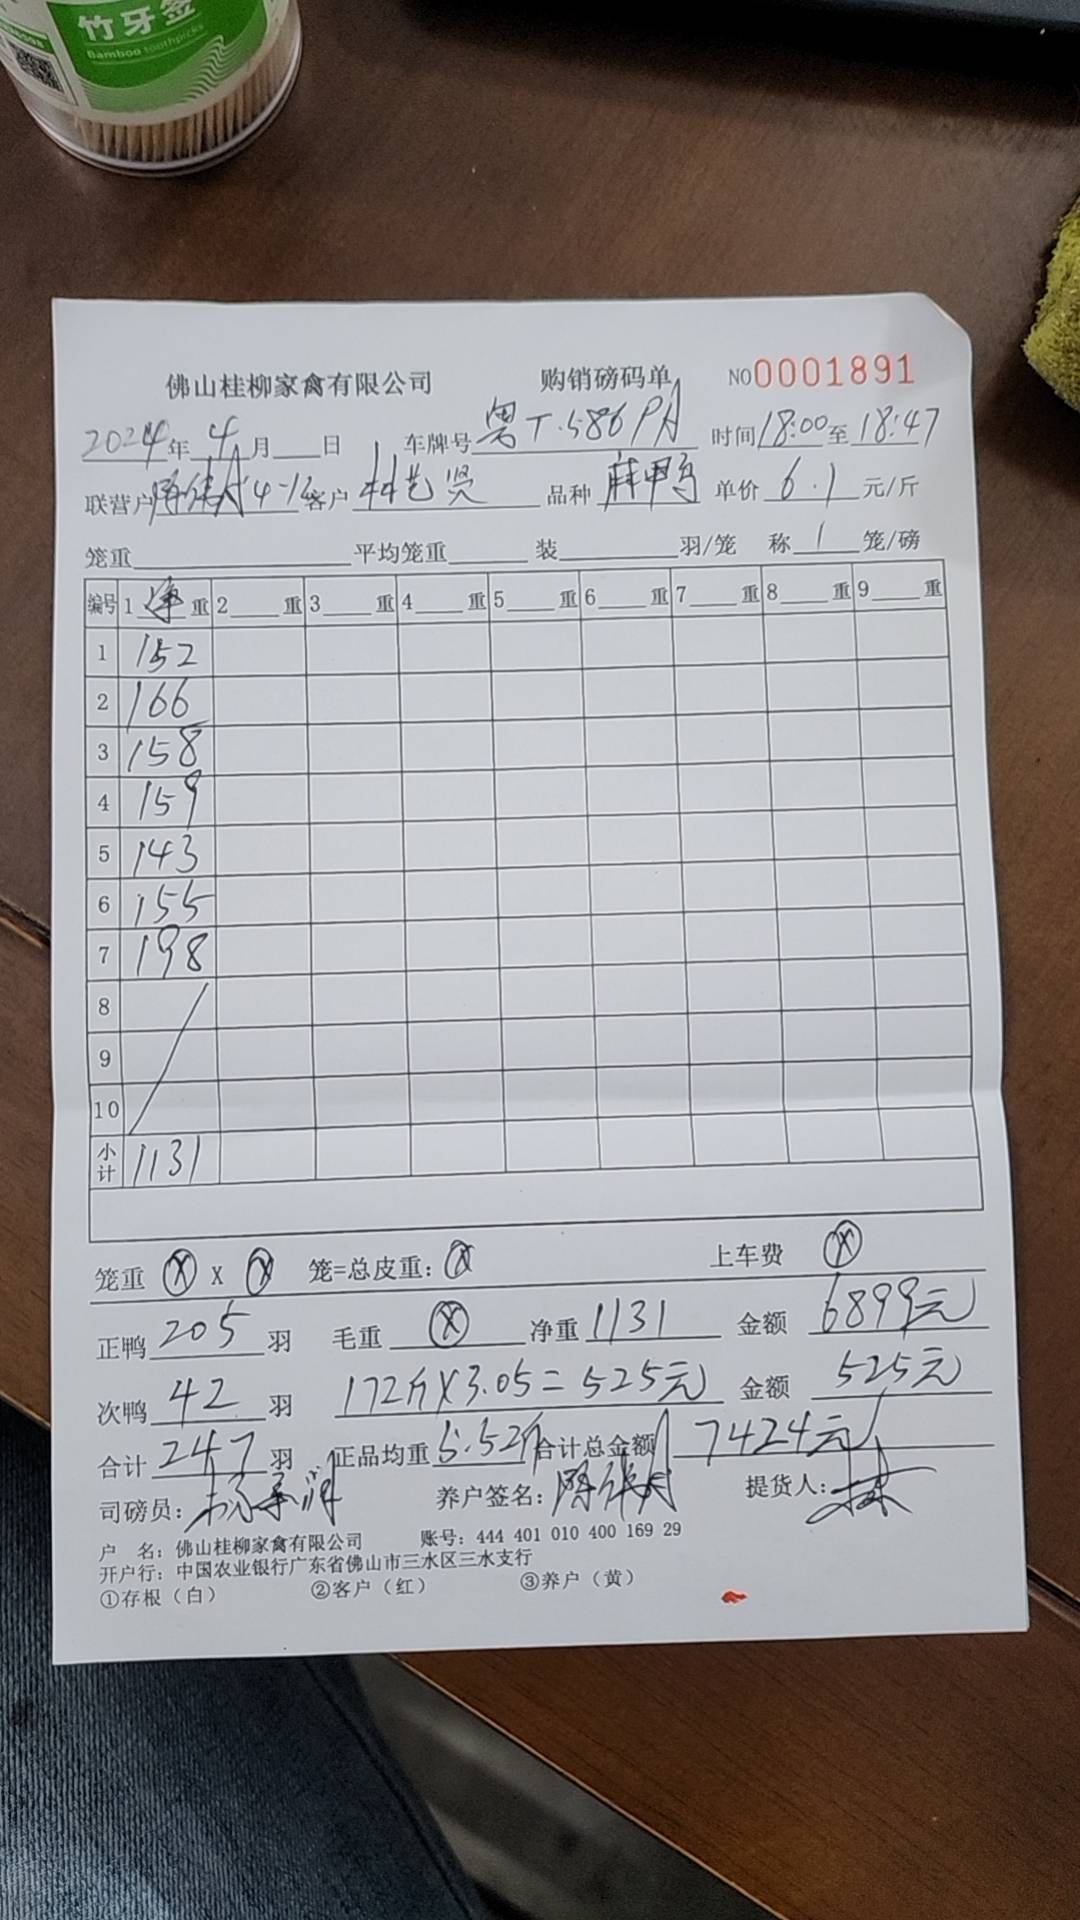 竹牙签
Bamboo toothpicks
佛山桂柳家禽有限公司 购销磅码单 NO0001891
2024年4月 日 车牌号粤T.586PA 时间18:00至18:47
联营户 4-12 客户林艺贤 品种麻鸭 单价6.1元/斤
笼重 平均笼重 装 羽/笼 称1笼/磅
编号 1净重 2 重 3 重 4 重 5 重 6 重 7 重 8 重 9 重
1 152
2 166
3 158
4 159
5 143
6 155
7 198
8
9
10
小计 1131
笼重 ⓧ x ⓧ 笼=总皮重:ⓧ 上车费 ⓧ
正鸭205羽 毛重 ⓧ 净重1131 金额 6899元
次鸭42羽 172斤X3.05=525元 金额 525元
合计247羽 正品均重5.52斤 合计总金额 7424元
司磅员: 养户签名: 提货人:林
户 名:佛山桂柳家禽有限公司 账号:444 401 010 400 169 29
开户行:中国农业银行广东省佛山市三水区三水支行
①存根(白) ②客户(红) ③养户(黄)